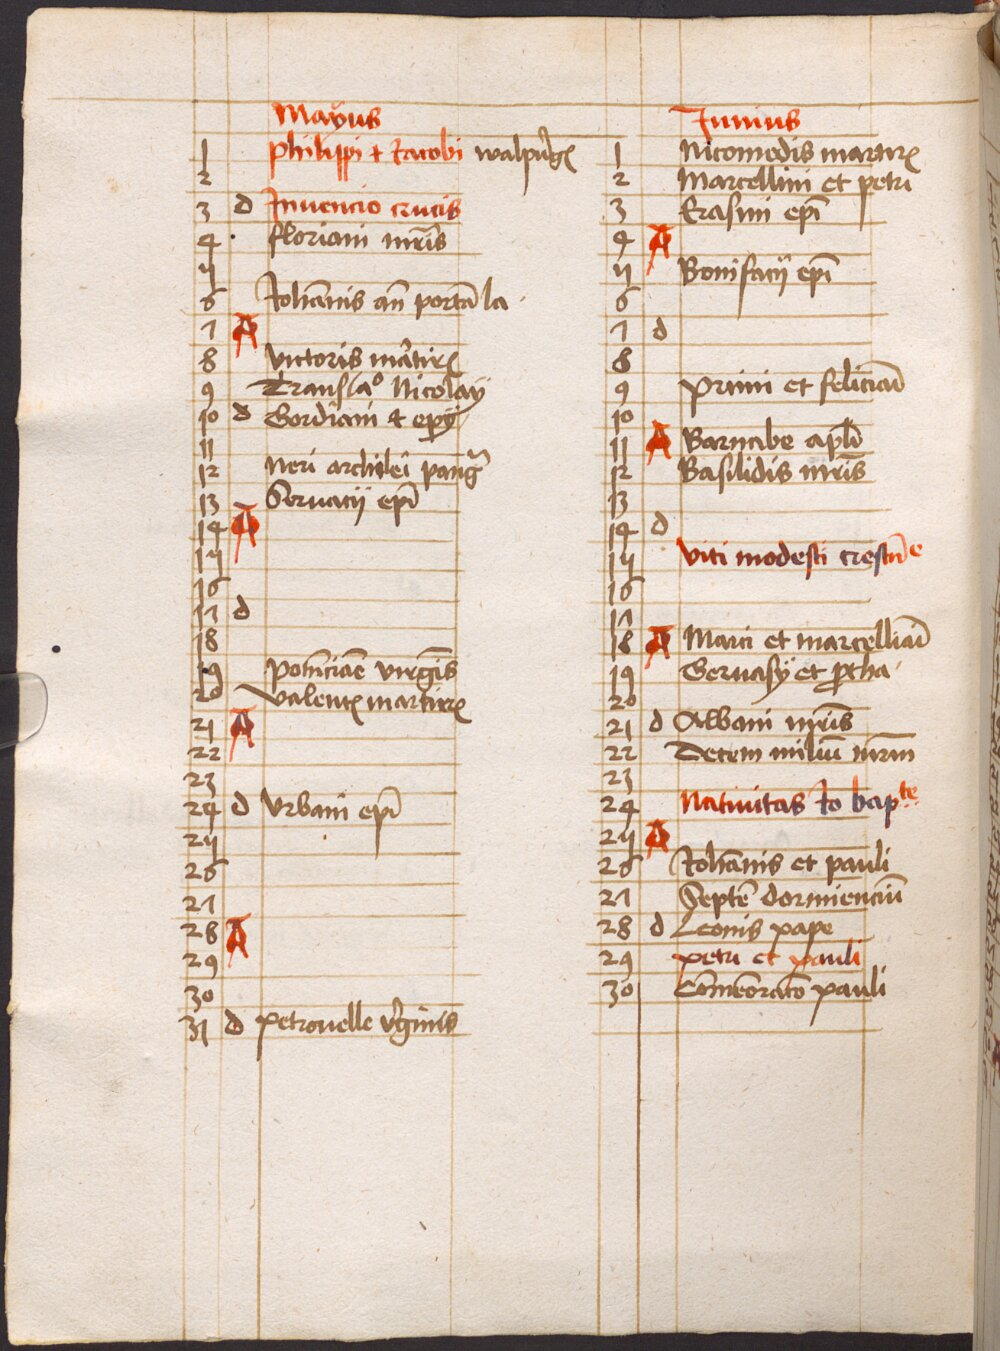 Mayus
1 Philippi & Iacobi walpurg
2
3 d Invencio crucis
4 floriani mris
5
6 Iohannis an portā la
7 A
8 victoris martir
9 Translaº Nicolay
10 d Gordiani & epy
11
12 Neri archilei pang
13 Servacij epi
14 A
15
16
17 d
18
19 Potenciane virginis
20 valent martir
21 A
22
23
24 d vrbani epi
25
26
27
28 A
29
30
31 d petronelle virginis
Iunius
1 Nicomedis martir
2 Marcellini et petri
3 Erasmi epi
4 A
5 Bonifacij epi
6
7 d
8
9 primi et feliciani
10
11 A Barnabe apli
12 Basilidis mris
13
14 d
15 viti modesti crescīe
16
17
18 A Marci et marcelliani
19 Gervasij et protha
20
21 d Albani mris
22 Decem miliū mrm
23
24 Nativitas Io bapte
25 A
26 Iohannis et pauli
27 Septē dormienciū
28 d Leonis pape
29 petri et pauli
30 Cōmēoratō pauli